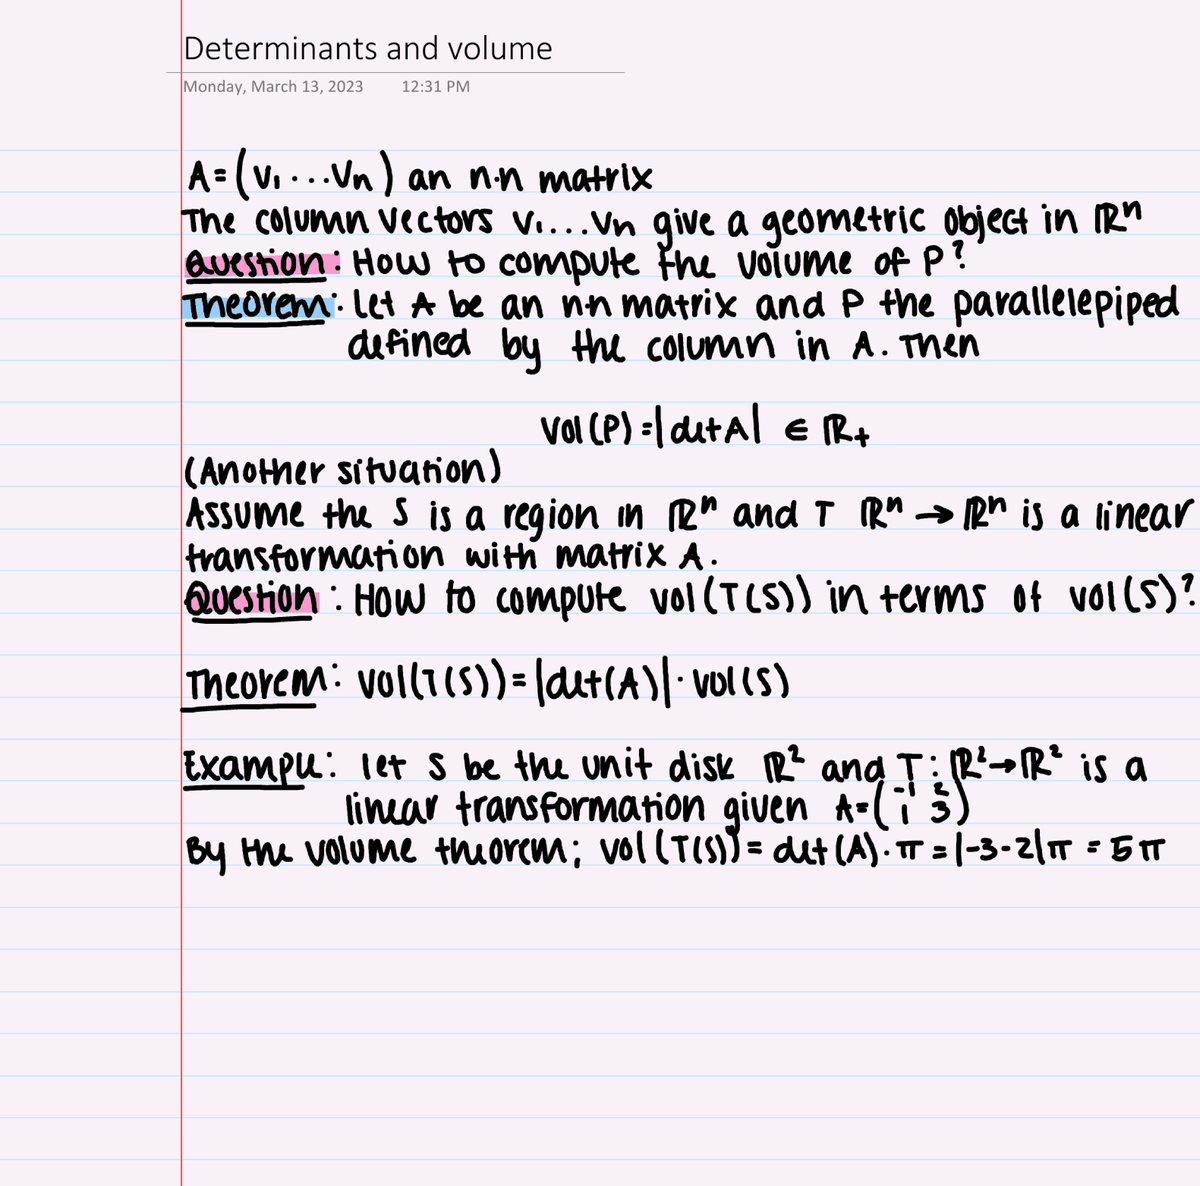 Determinants and volume
Monday, March 13, 2023 12:31 PM
A=(V₁...Vn) an n·n matrix
The column vectors V₁...Vn give a geometric object in ℝⁿ
Question: How to compute the volume of P?
Theorem: Let A be an n·n matrix and P the parallelepiped
defined by the column in A. Then
Vol(P)=|detA| ∈ ℝ₊
(Another situation)
Assume the S is a region in ℝⁿ and T ℝⁿ → ℝⁿ is a linear
transformation with matrix A.
Question: How to compute vol(T(S)) in terms of vol(S)?
Theorem: vol(T(S))=|det(A)|·vol(S)
Example: let S be the unit disk ℝ² and T:ℝ²→ℝ² is a
linear transformation given A=(-1 2
1 3)
By the volume theorem; vol(T(S))= det(A)·π =|-3-2|π = 5π